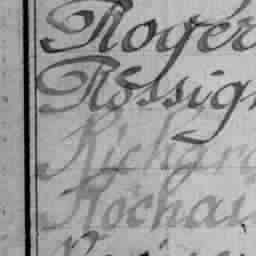 Roger
Rossig
Richard
Rochai